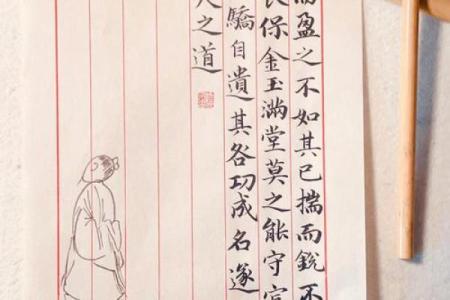 而盈之不如其已揣而銳不
長保金玉滿堂莫之能守富
驕自遺其各功成名遂
天之道